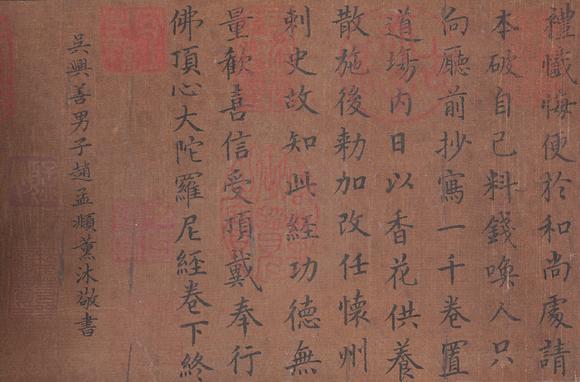 禮懺悔便於和尚處請
本破自己料錢喚人只
向廳前抄寫一千卷置
道場内日以香花供養
散施後勅加改任懷州
刺史故知此經功德無
量歡喜信受頂戴奉行
佛頂心大陀羅尼經卷下終
吳興善男子趙孟頫薰沐敬書